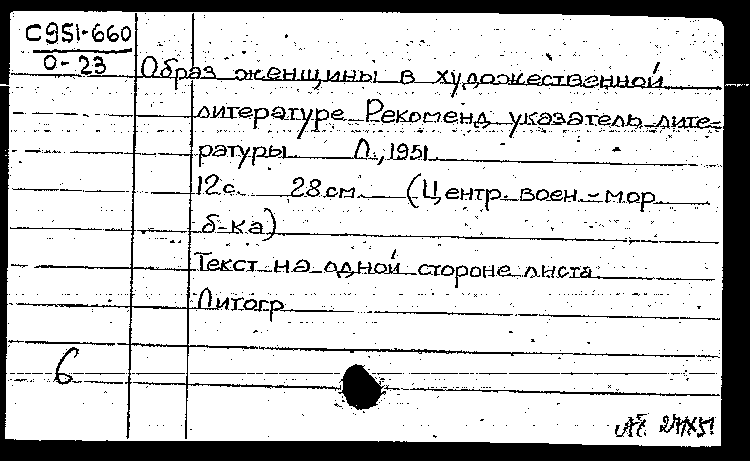 С951-660
О-23
Образ женщины в художественной
литературе Рекоменд указатель лите-
ратуры Л., 1951
12с. 28см. (Центр. воен.-мор
б-ка)
Текст на одной стороне листа
Литогр
6